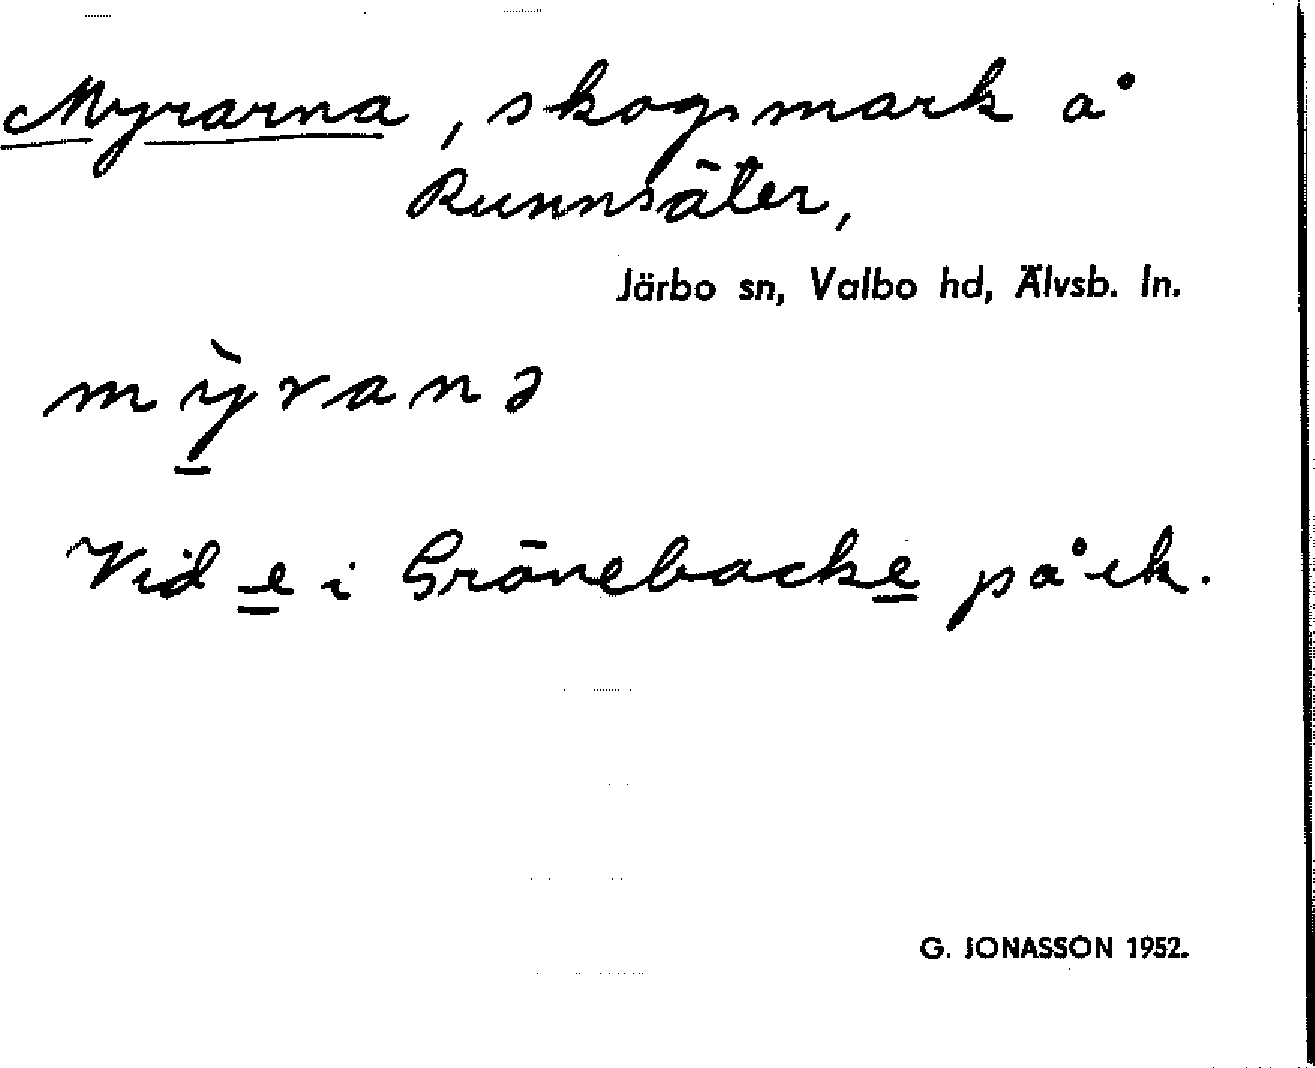 Myrarna, skogsmark å
Runnsäter,
Järbo sn, Valbo hd, Älvsb. ln.
mỳ̱rana
Vid e̱ i Grönebacke̱ på ek.
G. JONASSON 1952.